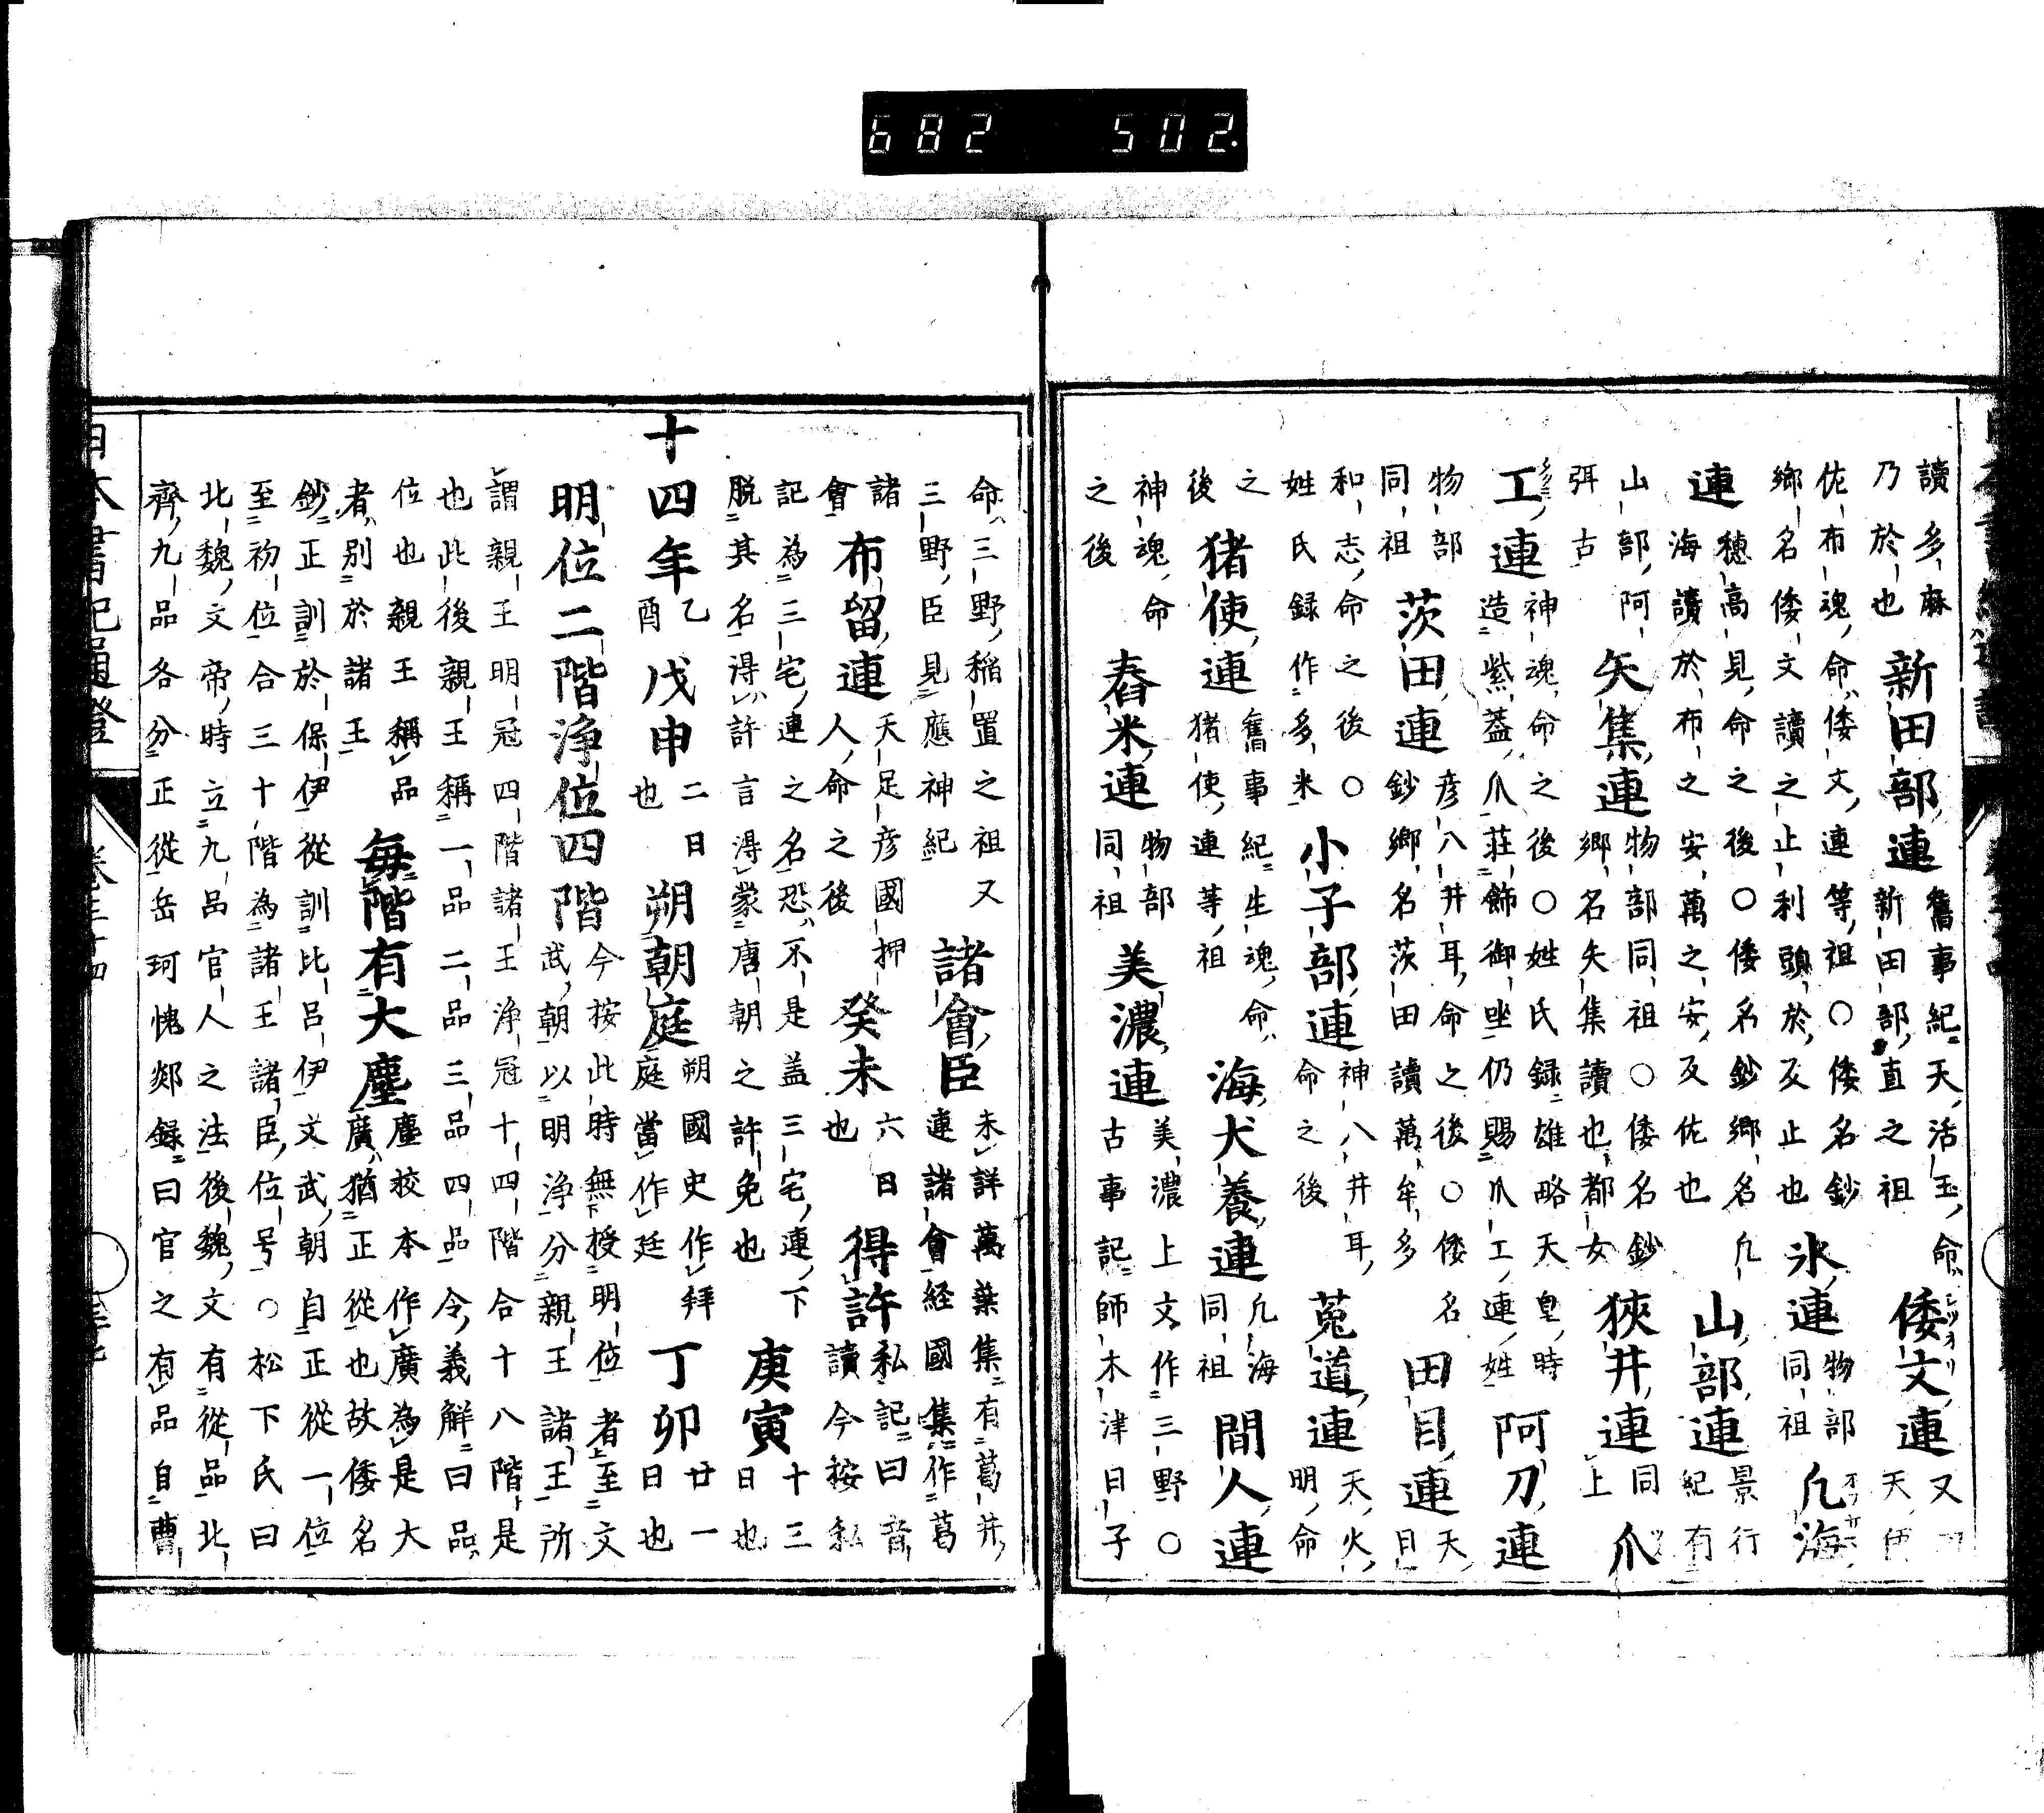 讀多麻乃於也新田部連舊事紀天活玉命新田部直之祖倭文連又天
佐布魂命倭文連等祖〇倭名鈔郷名倭文讀之止利頭於反止也氷連物部同祖凡海
連穗高見命之後〇倭名鈔郷名凡海讀於布之安萬之安反佐也山部連景行紀有
山部阿弭古矢集連物部同祖〇倭名鈔郷名矢集讀也都女狹井連同上爪
工連神魂命之後〇姓氏録雄略天皇時造紫蓋爪莊飾御坐仍賜爪工連姓阿刀連
物部同祖茨田連彦八井耳命之後〇倭名鈔郷名茨田讀萬牟多田目連天目
和志命之後〇姓氏録作多米小子部連神八井耳命之後菟道連天火明命
之後猪使連舊事紀生魂命猪使連等祖海犬養連凡海同祖間人連
神魂命之後舂米連物部同祖美濃連美濃上文作三野〇古事記師木津日子
命三野稲置之祖又三野臣見應神紀諸會臣未詳萬葉集有葛井連諸會経國集作葛
諸會布留連天足彦國押人命之後癸未六日也得許私記曰音讀今按私
記為三宅連之名恐不是盖三宅連下脱其名得許言得蒙唐朝之許免也庚寅十三日也
十四年乙酉戊申二日也朔朝庭朔國史作拜庭當作廷丁卯廿一日也
明位二階浄位四階今按此時無授明位者至文武朝以明浄分親王諸王所
謂親王明冠四階諸王浄冠十四階合十八階是
也此後親王稱一品二品三品四品令義解曰品
位也親王稱品者別於諸王毎階有大廛廛挍本作廣為是大廣猶正從也故倭名
鈔正訓於保伊從訓比呂伊文武朝自正從一位
至初位合三十階為諸王諸臣位号〇松下氏曰
北魏文帝時立九品官人之法後魏文有從品北
齊九品各分正從岳珂愧郯録曰官之有品自曹
日本書紀通證